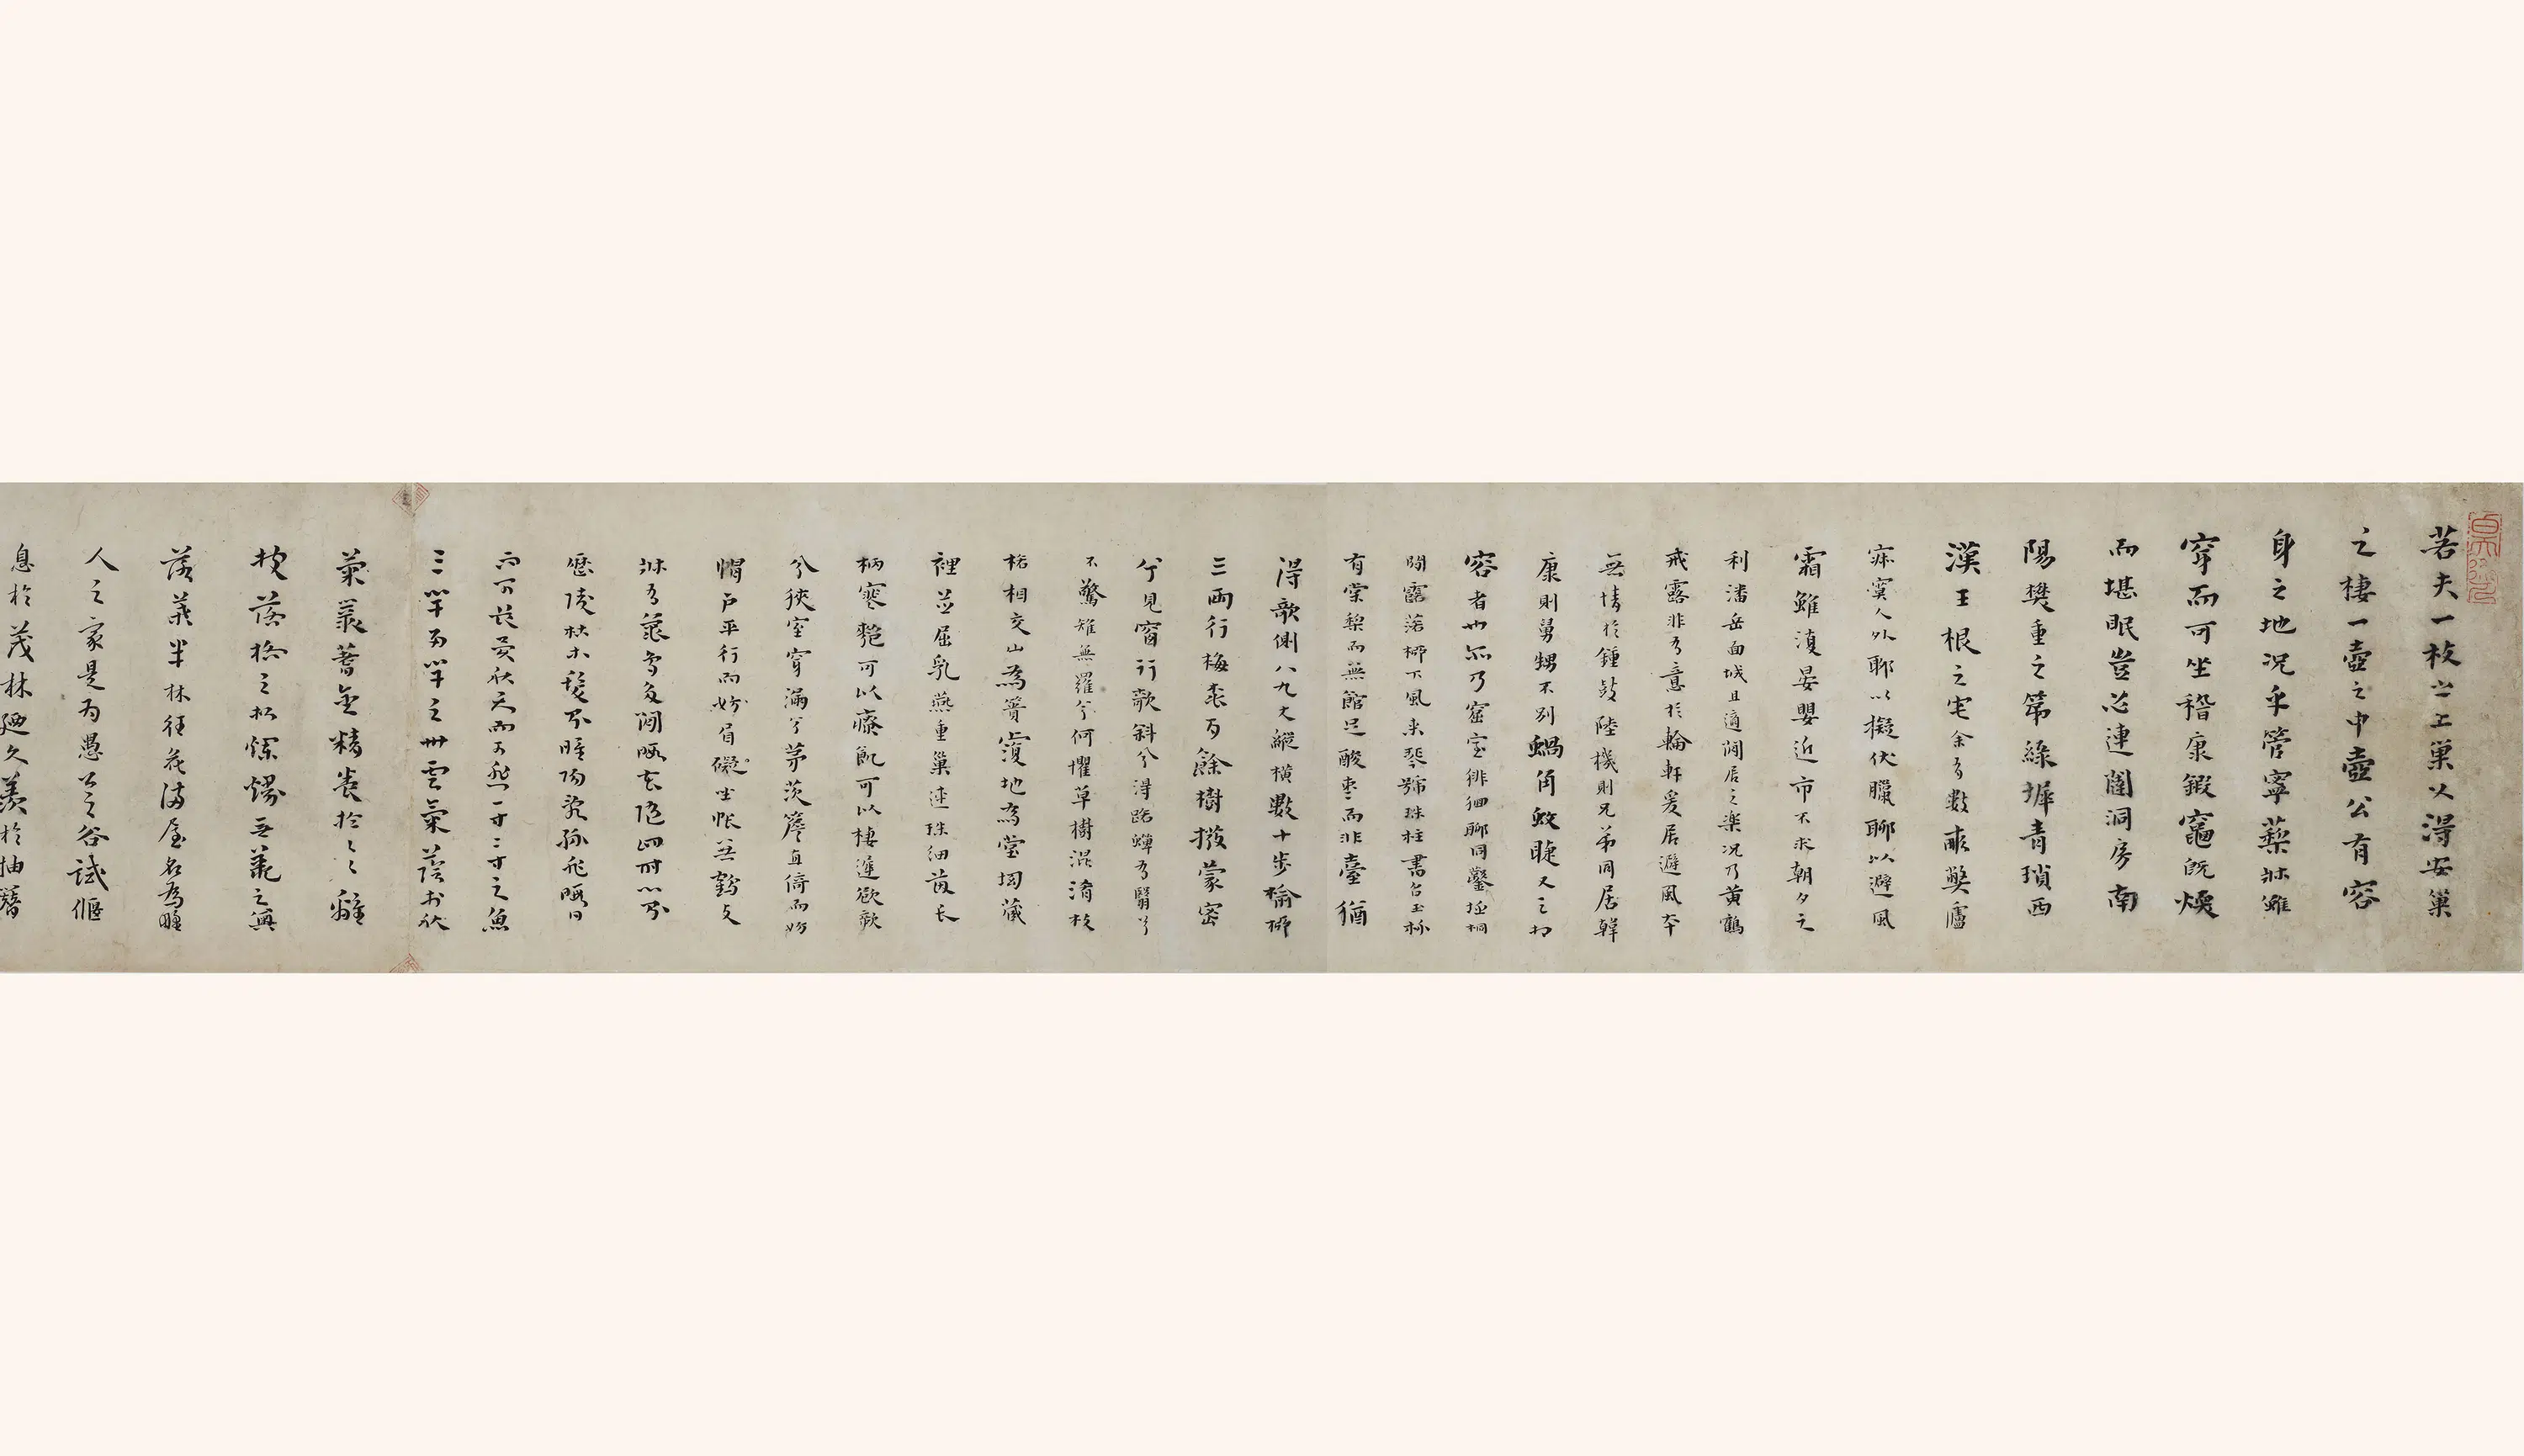 若夫一枝之上巢父得安巢
之棲一壺之中壺公有容
身之地況乎管寧藜牀雖
穿而可坐稽康鍛竈既煖
而堪眠豈必連闥洞房南
陽樊重之第綠墀青瑣西
漢王根之宅余有數畝弊廬
寂寞人外聊以擬伏臘聊以避風
霜雖復晏嬰近市不求朝夕之
利潘岳面城且適閑居之樂況乃黃鶴
戒露非有意於輪軒爰居避風本
無情於鍾鼓陸機則兄弟同居韓
康則舅甥不別蝸角蚊睫又足相
容者也尔乃窟室徘徊聊同鑿坯桐
間露落柳下風來琴號珠柱書名玉杯
有棠梨而無館足酸棗而非臺猶
得欹側八九丈縱橫數十步榆柳
三兩行梅桃百餘樹撥蒙密
兮見窗行欹斜兮得路蟬有翳兮
不驚雉無羅兮何懼草樹混淆枝
格相交山為簣覆地為堂坳藏
裡並窟乳燕重巢連珠細茵長
柄寒匏可以療飢可以棲遲欹
兮狹室穿漏兮茅茨簷直倚而妨
帽戶平行而妨眉礙坐帳無鶴支
牀有龜鳥多閑暇花隨四時心則
歷陵枯木髮則睢陽亂絲非夏日
而可畏異秋天而可悲一寸二寸之魚
三竿兩竿之竹雲氣蔭於秋
菊叢蓍金精養於
落葉半牀狂花滿屋名為野
人之家是為愚公之谷試偃
息於茂林迺久羨於抽簪